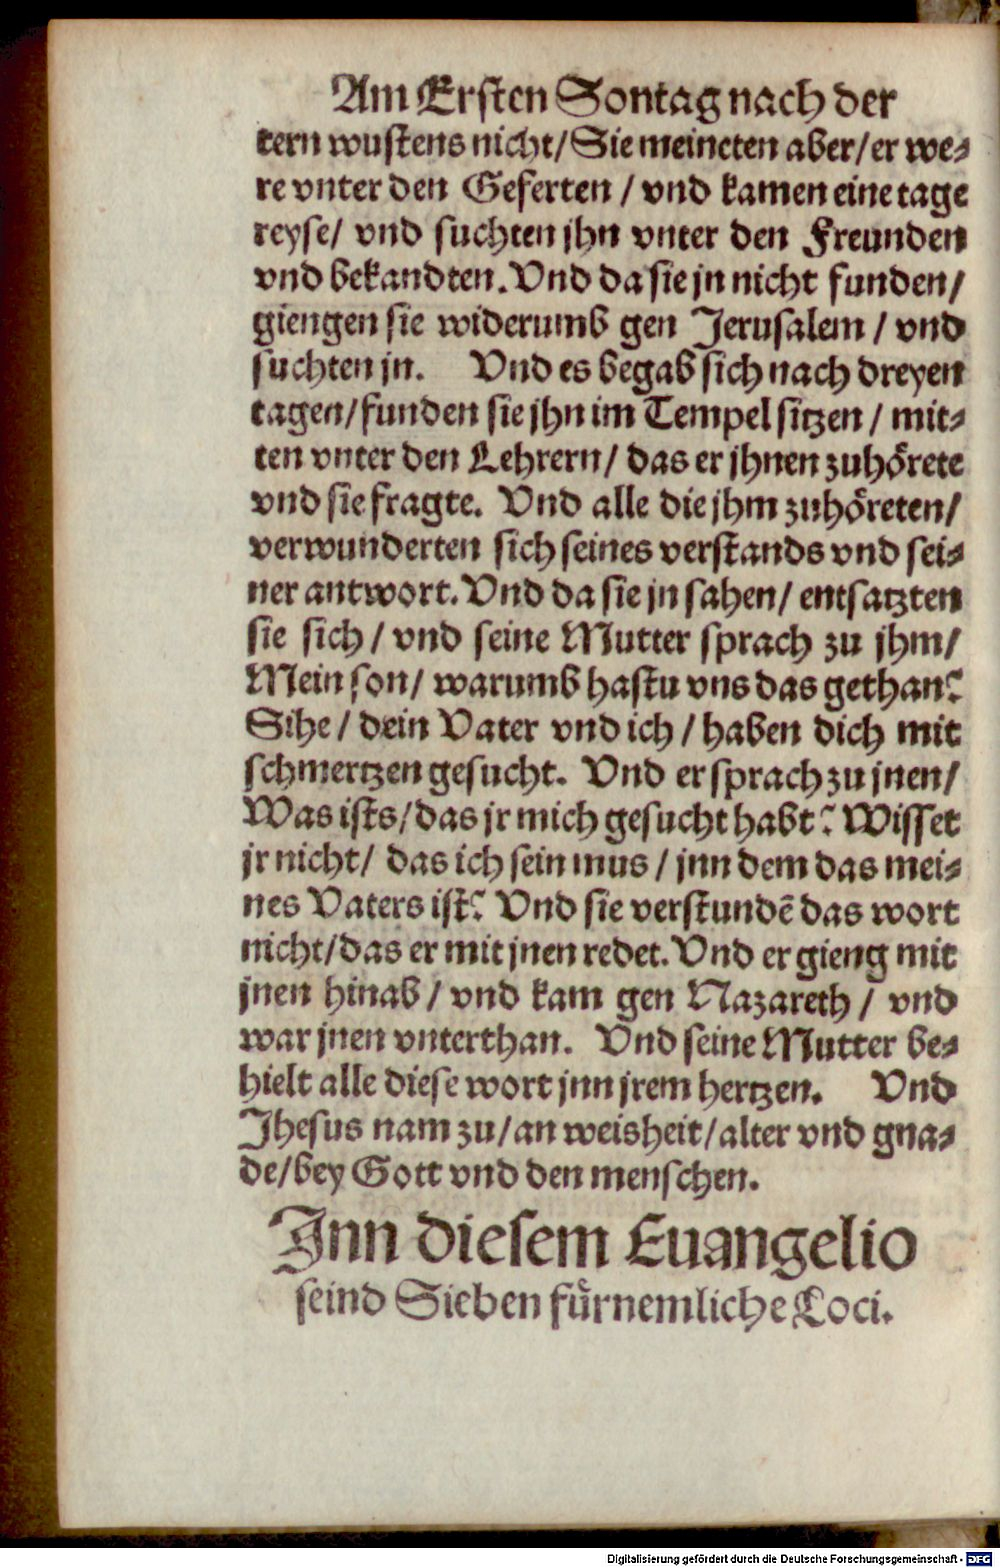 Am Ersten Sontag nach der
tern wustens nicht/ Sie meineten aber/ er we⸗
re vnter den Geferten / vnd kamen eine tage
reyse/ vnd suchten jhn vnter den Freunden
vnd bekandten. Vnd da sie jn nicht funden/
giengen sie widerumb gen Jerusalem / vnd
suchten jn. Vnd es begab sich nach dreyen
tagen/ funden sie jhn im Tempel sitzen / mit⸗
ten vnter den Lehrern/ das er jhnen zuhoͤrete
vnd sie fragte. Vnd alle die jhm zuhoͤreten/
verwunderten sich seines verstands vnd sei⸗
ner antwort. Vnd da sie jn sahen/ entsatzten
sie sich / vnd seine Mutter sprach zu jhm/
Mein son/ warumb hastu vns das gethan?
Sihe / dein Vater vnd ich / haben dich mit
schmertzen gesucht. Vnd er sprach zu jnen/
Was ists/ das jr mich gesucht habt? Wisset
jr nicht/ das ich sein mus / jnn dem das mei⸗
nes Vaters ist? Vnd sie verstundẽ das wort
nicht/ das er mit jnen redet. Vnd er gieng mit
jnen hinab / vnd kam gen Nazareth / vnd
war jnen vnterthan. Vnd seine Mutter be⸗
hielt alle diese wort jnn jrem hertzen. Vnd
Jhesus nam zu/ an weisheit/ alter vnd gna⸗
de/ bey Gott vnd den menschen.
Jnn diesem Euangelio
seind Sieben fuͤrnemliche Loci.
Digitalisierung gefördert durch die Deutsche Forschungsgemeinschaft - DFG